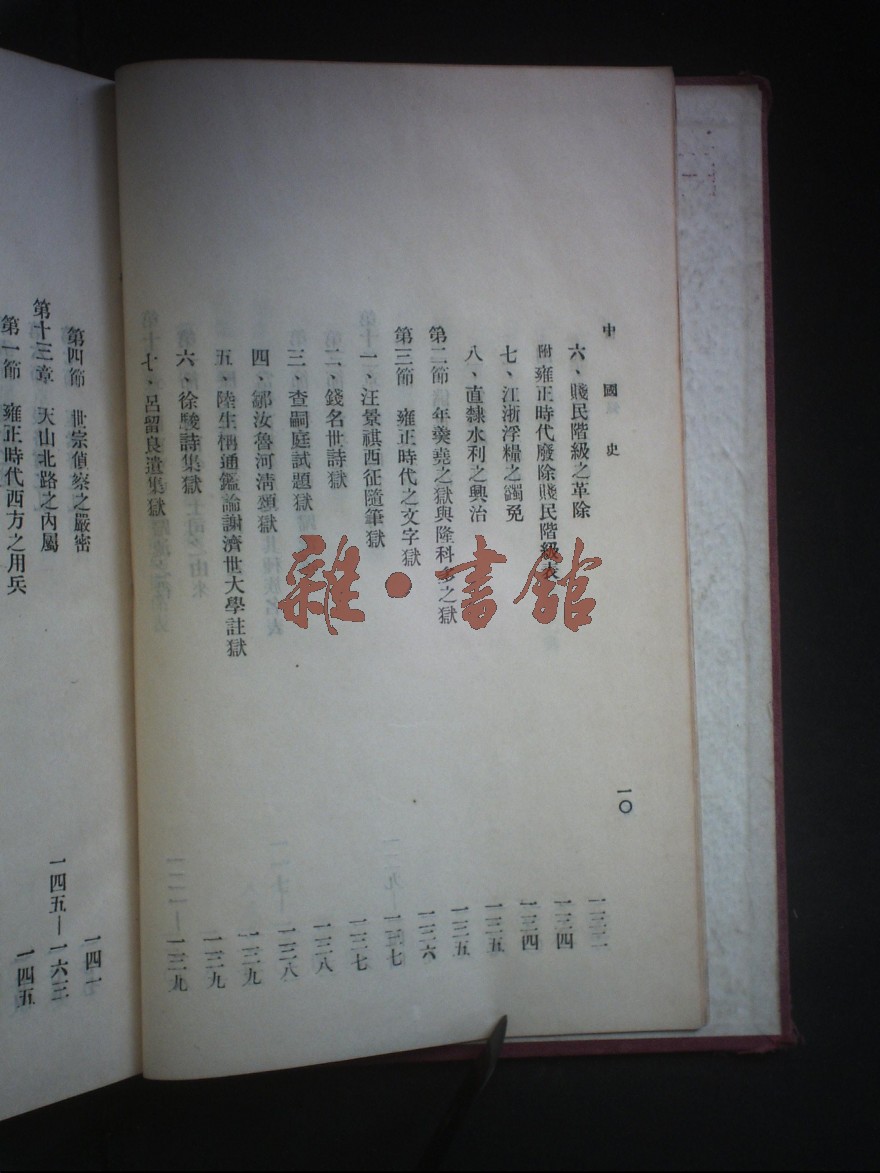 中國史
一〇
六、賤民階級之革除 一三三
附 雍正時代廢除賤民階級表 一三四
七、江浙浮糧之蠲免 一三四
八、直隸水利之興治 一三五
第二節 年羹堯之獄與隆科多之獄 一三五
第三節 雍正時代之文字獄 一三六
一、汪景祺西征隨筆獄 一三七
二、錢名世詩獄 一三七
三、查嗣庭試題獄 一三八
四、鄒汝魯河清頌獄 一三八
五、陸生柟通鑑論謝濟世大學註獄 一三九
六、徐駿詩集獄 一三九
七、呂留良遺集獄 一三九
第四節 世宗偵察之嚴密 一四一
第十三章 天山北路之內屬 一四五—一六三
第一節 雍正時代西方之用兵 一四五
雜·書館